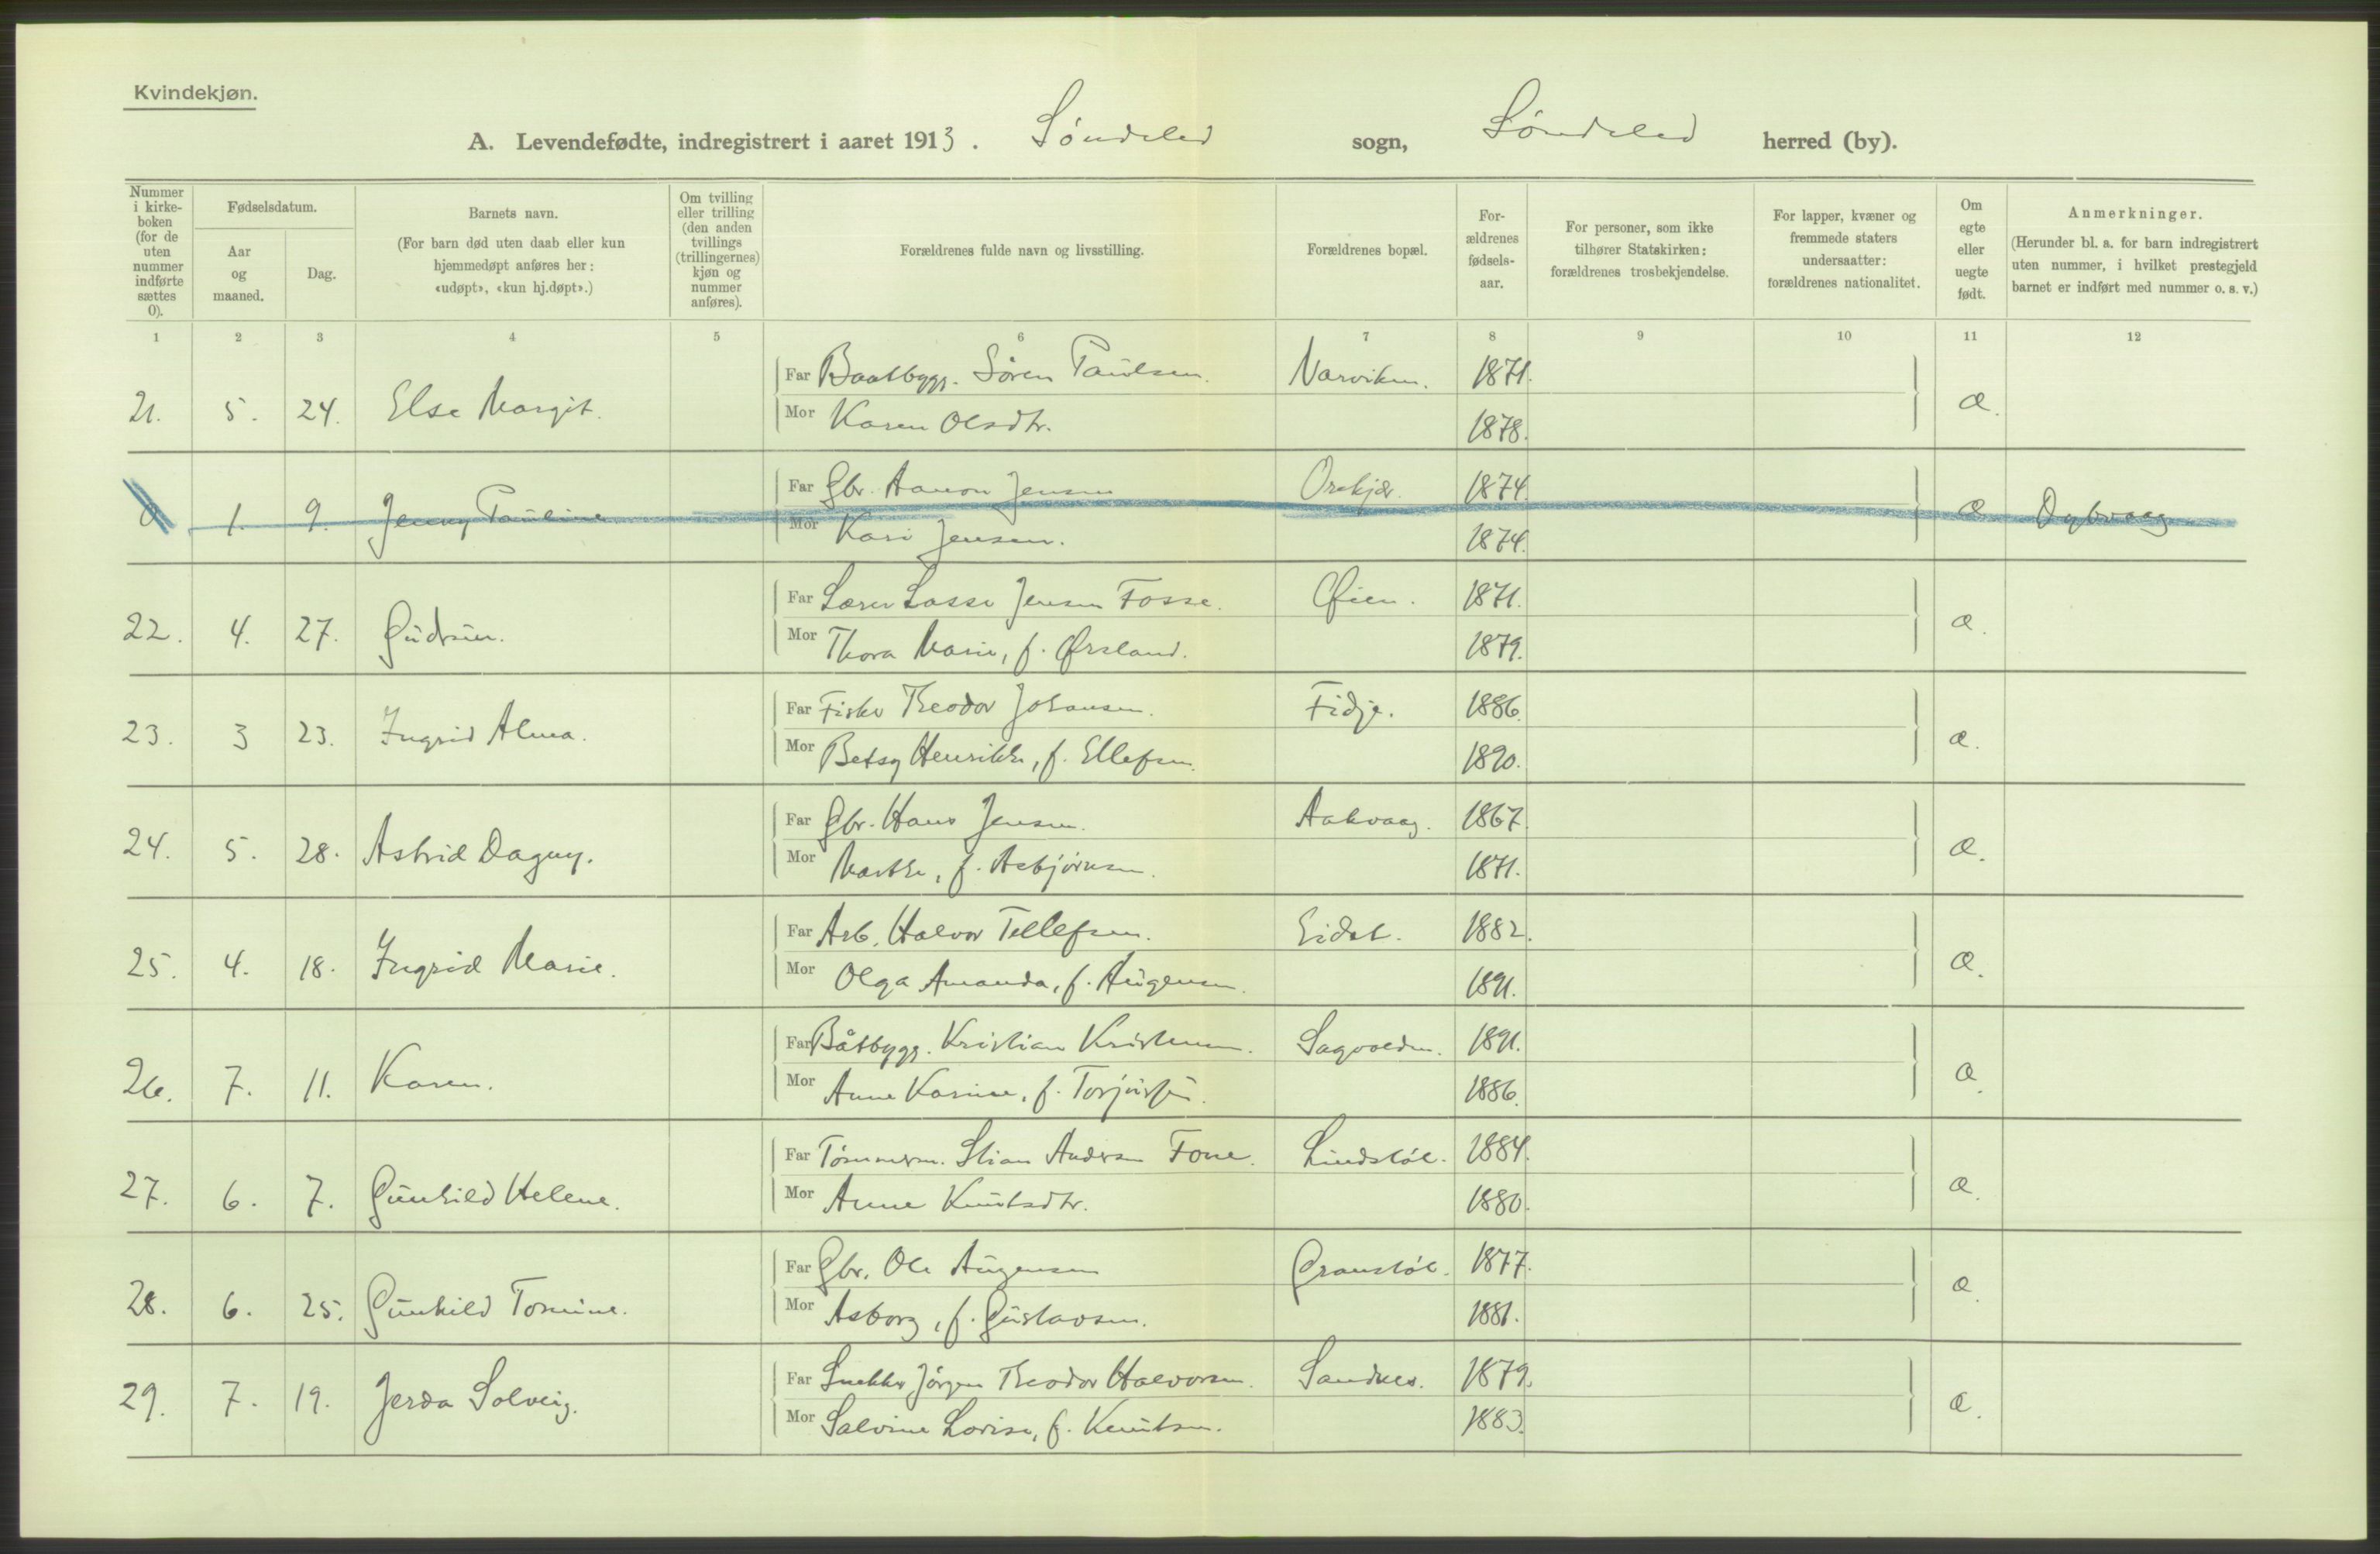 Kvindekjøn.
A. Levendefødte, indregistrert i aaret 1913. Søndeled sogn, Søndeled herred (by).
Nummer i kirke- boken (for de uten nummer indførte sættes 0).
Fødselsdatum.
Aar og maaned.
Dag.
Barnets navn.
(For barn død uten daab eller kun hjemmedøpt anføres her: «udøpt», «kun hj.døpt».)
Om tvilling eller trilling (den anden tvillings (trillingernes) kjøn og nummer anføres).
Forældrenes fulde navn og livsstilling.
Forældrenes bopæl.
For- ældrenes fødsels- aar.
For personer, som ikke tilhører Statskirken: forældrenes trosbekjendelse.
For lapper, kvæner og fremmede staters undersaatter: forældrenes nationalitet.
Om egte eller uegte født.
Anmerkninger.
(Herunder bl. a. for barn indregistrert uten nummer, i hvilket prestegjeld barnet er indført med nummer o. s. v.)
1 2 3 4 5 6 7 8 9 10 11 12
Far Baatbygg. Søren Paulsen. Narviken. 1871.
21. 5. 24. Else Margit. æ.
Mor Karen Olsdtr. 1878.
Far Gbr. Aanon Jensen Orekjær. 1874.
0 1. 9. Jenny Pauline æ Dybvaag
Mor Kari Jensen. 1874.
Far Lærer Lasse Jensen Fosse. Øien. 1871.
22. 4. 27. Gudrun. æ.
Mor Thora Marie, f. Ørsland. 1879.
Far Fisker Theodor Johansen. Fidje. 1886.
23. 3 23. Ingrid Alma. æ.
Mor Betsy Henrikke, f. Ellefsen. 1890.
Far Gbr. Hans Jensen. Aakvaag. 1867.
24. 5. 28. Astrid Dagny. æ.
Mor Marthe, f. Asbjørnsen. 1871.
Far Arb. Halvor Tellefsen. Eidet. 1882.
25. 4. 18. Ingrid Marie. æ.
Mor Olga Amanda, f. Augensen. 1891.
Far Båtbygg. Kristian Kristensen. Sagvolden. 1891.
26. 7. 11. Karen. æ.
Mor Anne Karine, f. Torjusen. 1886.
Far Tømmerm. Stian Andersen Fone. Lindstøl. 1884.
27. 6. 7. Gunhild Helene. æ.
Mor Anne Knutsdtr. 1880.
Far Gbr. Ole Augensen Granstøl. 1877.
28. 6. 25. Gunhild Tomine. æ.
Mor Asborg, f. Gustavsen. 1881.
Far Snekker Jørgen Theodor Halvorsen. Sandnes. 1879.
29. 7. 19. Jerda Solveig. æ.
Mor Salvine Lovise, f. Knutsen. 1883.